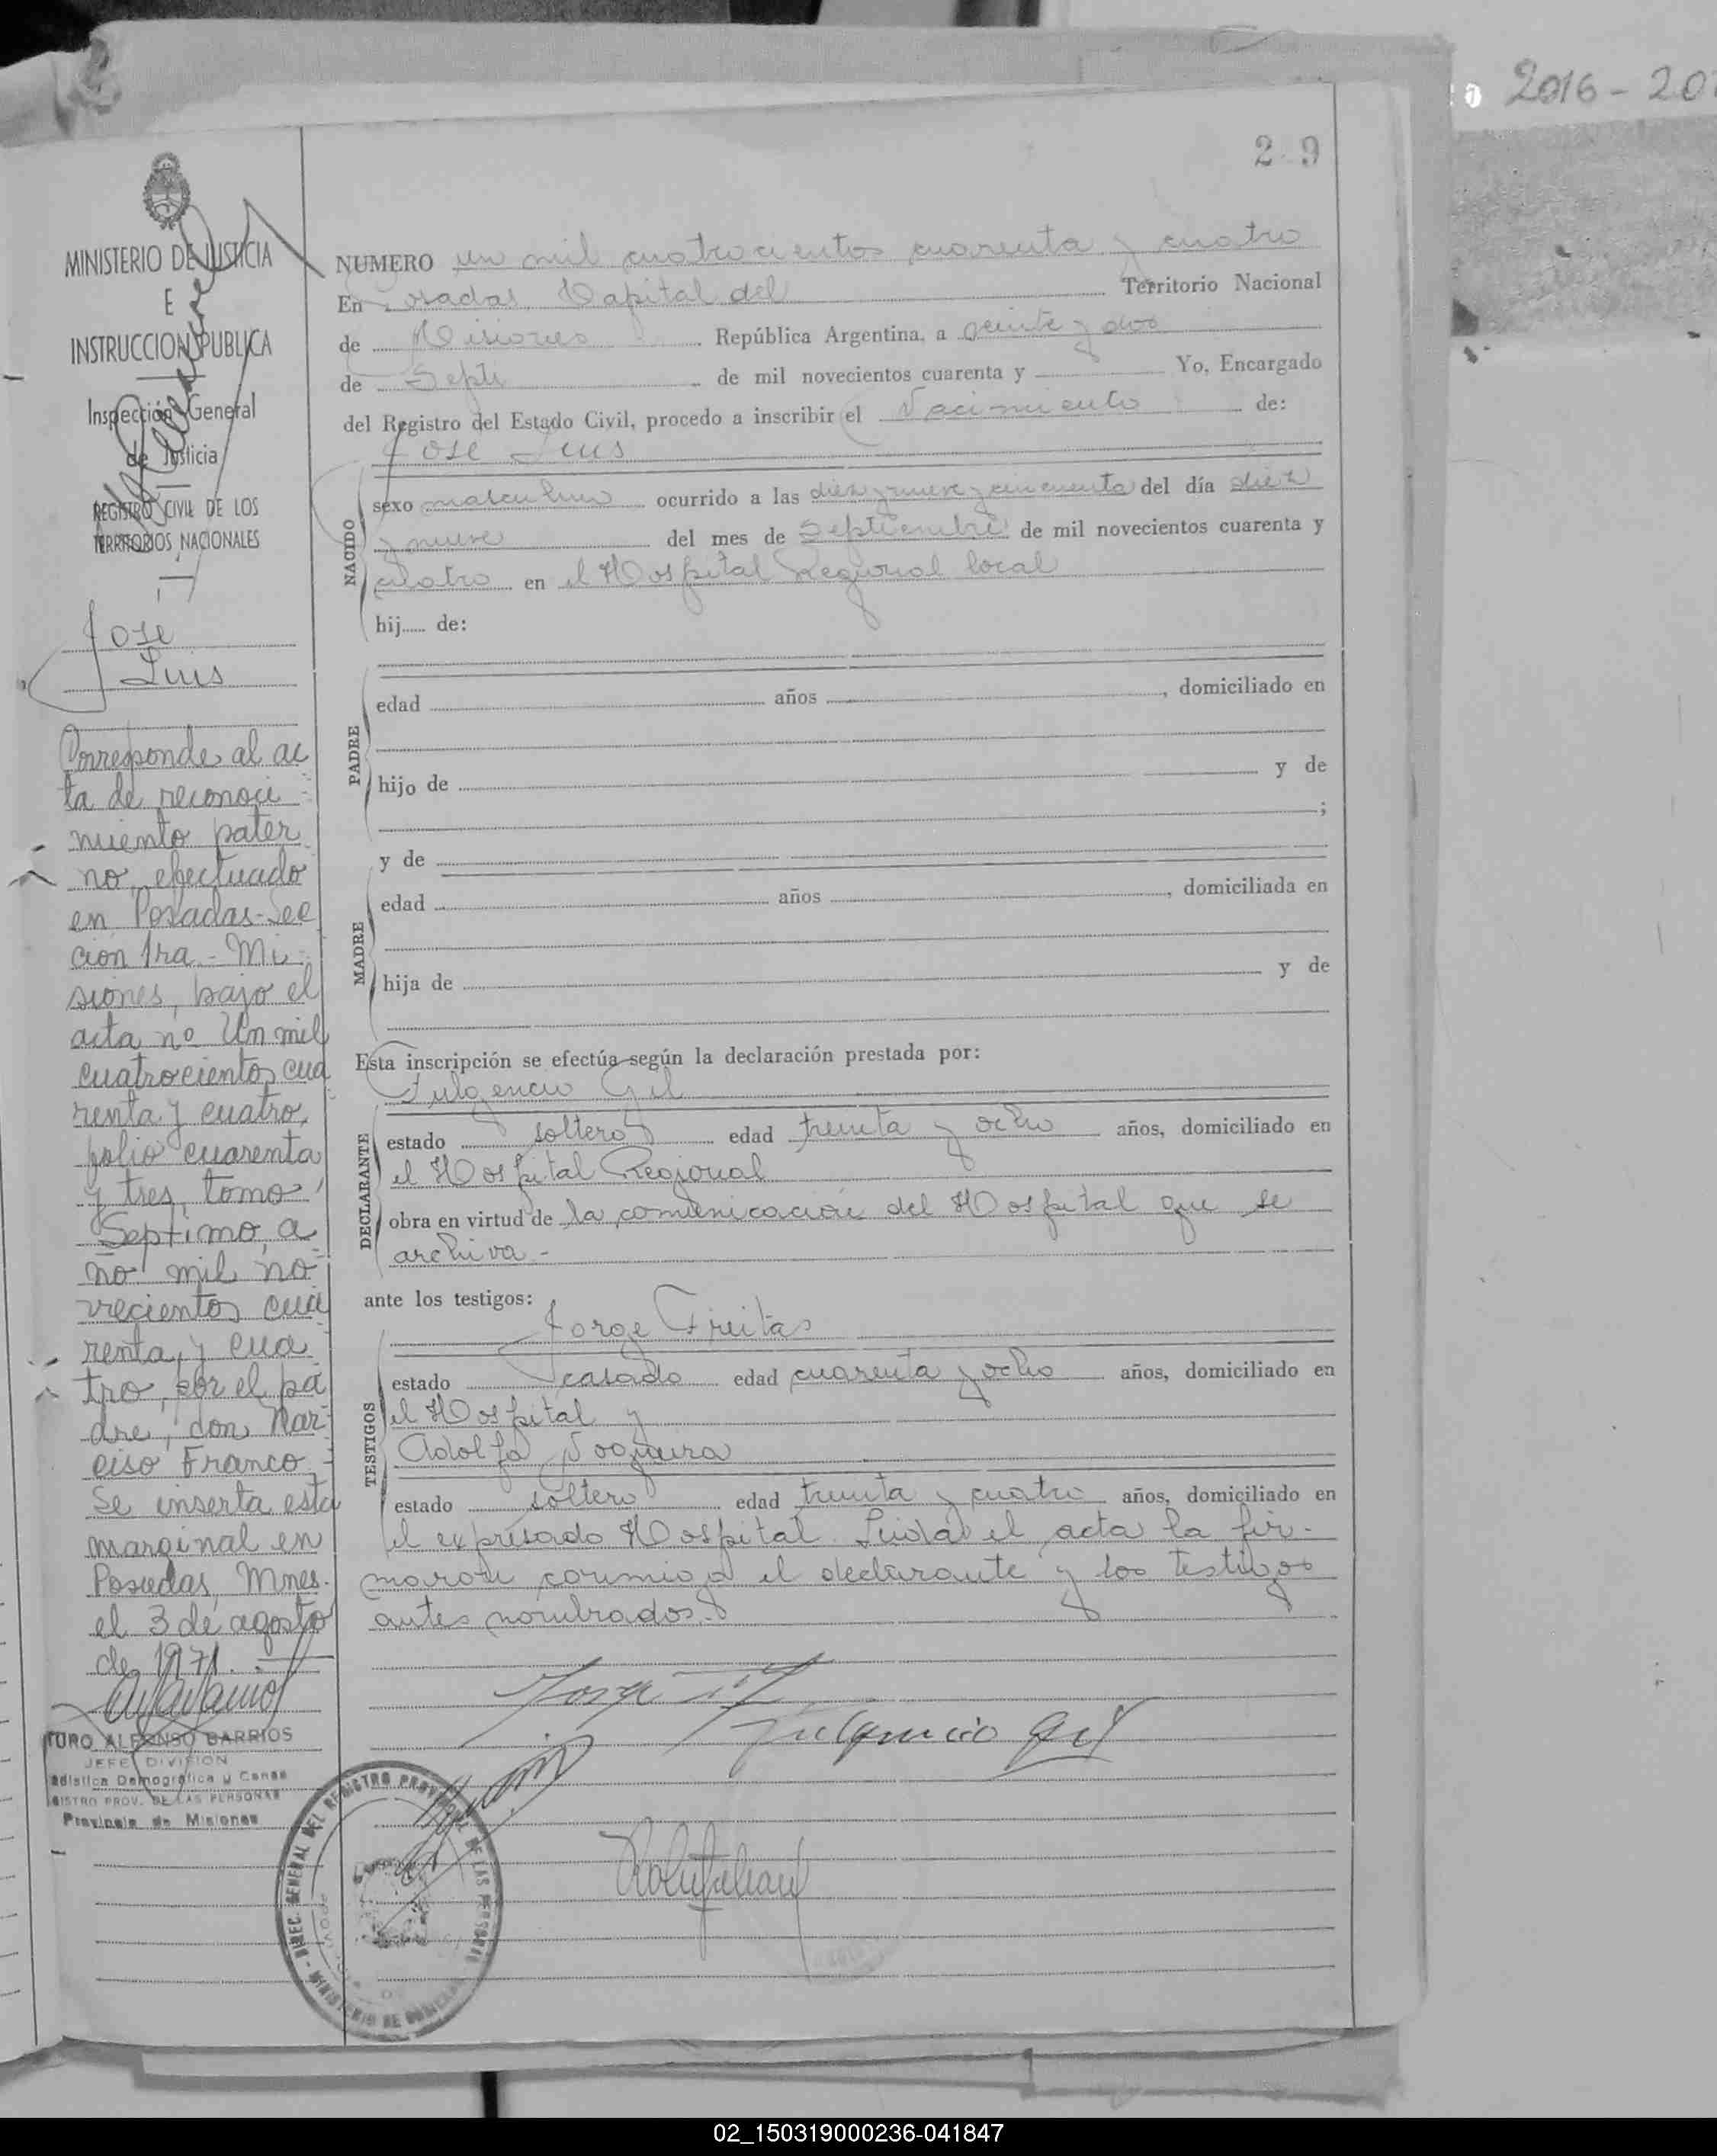 2016-20
2 9
MINISTERIO DE JUSTICIA
E
INSTRUCCION PUBLICA
Inspección General
de Justicia
REGISTRO CIVIL DE LOS
TERRITORIOS NACIONALES
Jose
Luis
Corresponde al ac
ta de reconoci
miento pater
no, efectuado
en Posadas-Sec
cion 1ra.- Mi
siones, bajo el
acta nº Un mil
cuatrocientos cua
renta y cuatro,
folio cuarenta
y tres, tomo
Septimo, a
no mil no
vecientos cua
renta, y cua
tro, por el pa
dre, don Nar
ciso Franco.
Se inserta esta
marginal en
Posadas, Mnes.
el 3 de agosto
de 1971.
TURO ALFONSO BARRIOS
JEFE DIVISION
adistica Demografica y Censo
GISTRO PROV. DE LAS PERSONAS
Provincia de Misiones
NUMERO un mil cuatrocientos cuarenta y cuatro
En Posadas, Capital del Territorio Nacional
de Misiones República Argentina, a veinte y dos
de Septi de mil novecientos cuarenta y Yo, Encargado
del Registro del Estado Civil, procedo a inscribir el Nacimiento de:
Jose Luis
NACIDO
sexo masculino ocurrido a las diez y nueve y cincuenta del día diez
y nueve del mes de Septiembre de mil novecientos cuarenta y
cuatro en el Hospital Regional local
hij..... de:
PADRE
edad años , domiciliado en
hijo de y de
;
y de
MADRE
edad años , domiciliada en
hija de y de
Esta inscripción se efectúa según la declaración prestada por:
Fulgencio Gil
DECLARANTE
estado soltero edad treinta y ocho años, domiciliado en
el Hospital Regional
obra en virtud de la comunicación del Hospital que se
archiva.-
ante los testigos:
Jorge Freitas
TESTIGOS
estado casado edad cuarenta y ocho años, domiciliado en
el Hospital y
Adolfo Nogueira
estado soltero edad treinta y cuatro años, domiciliado en
el expresado Hospital. Leida el acta la fir-
maron conmigo el declarante y los testigos
antes nombrados.
Fulgencio Gil
DIREC. GENERAL DEL REGISTRO PROVINCIAL DE LAS PERSONAS
MINISTERIO DE GOBIERNO
02_150319000236-041847